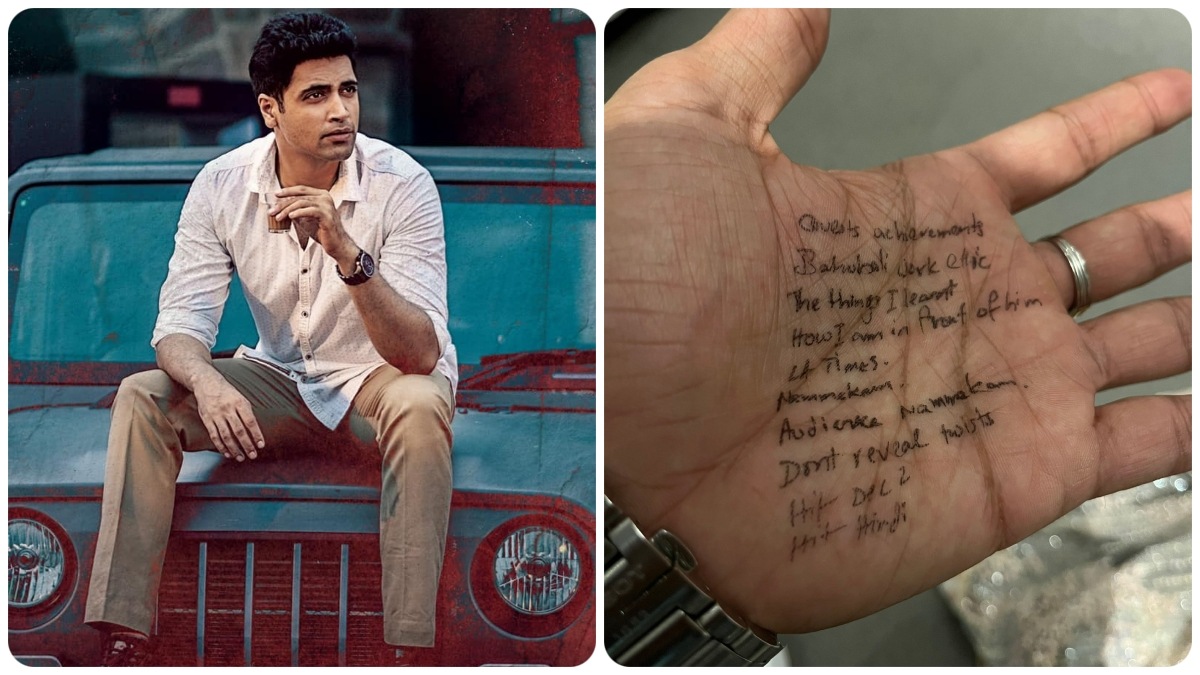 Guests achievements
Bahubali work ethic
The things I learnt
How I am in Proof of him
LA Times.
Nammakam.
Audience Nammakam.
Dont reveal twists
Hit Dec 2
Hit Hindi